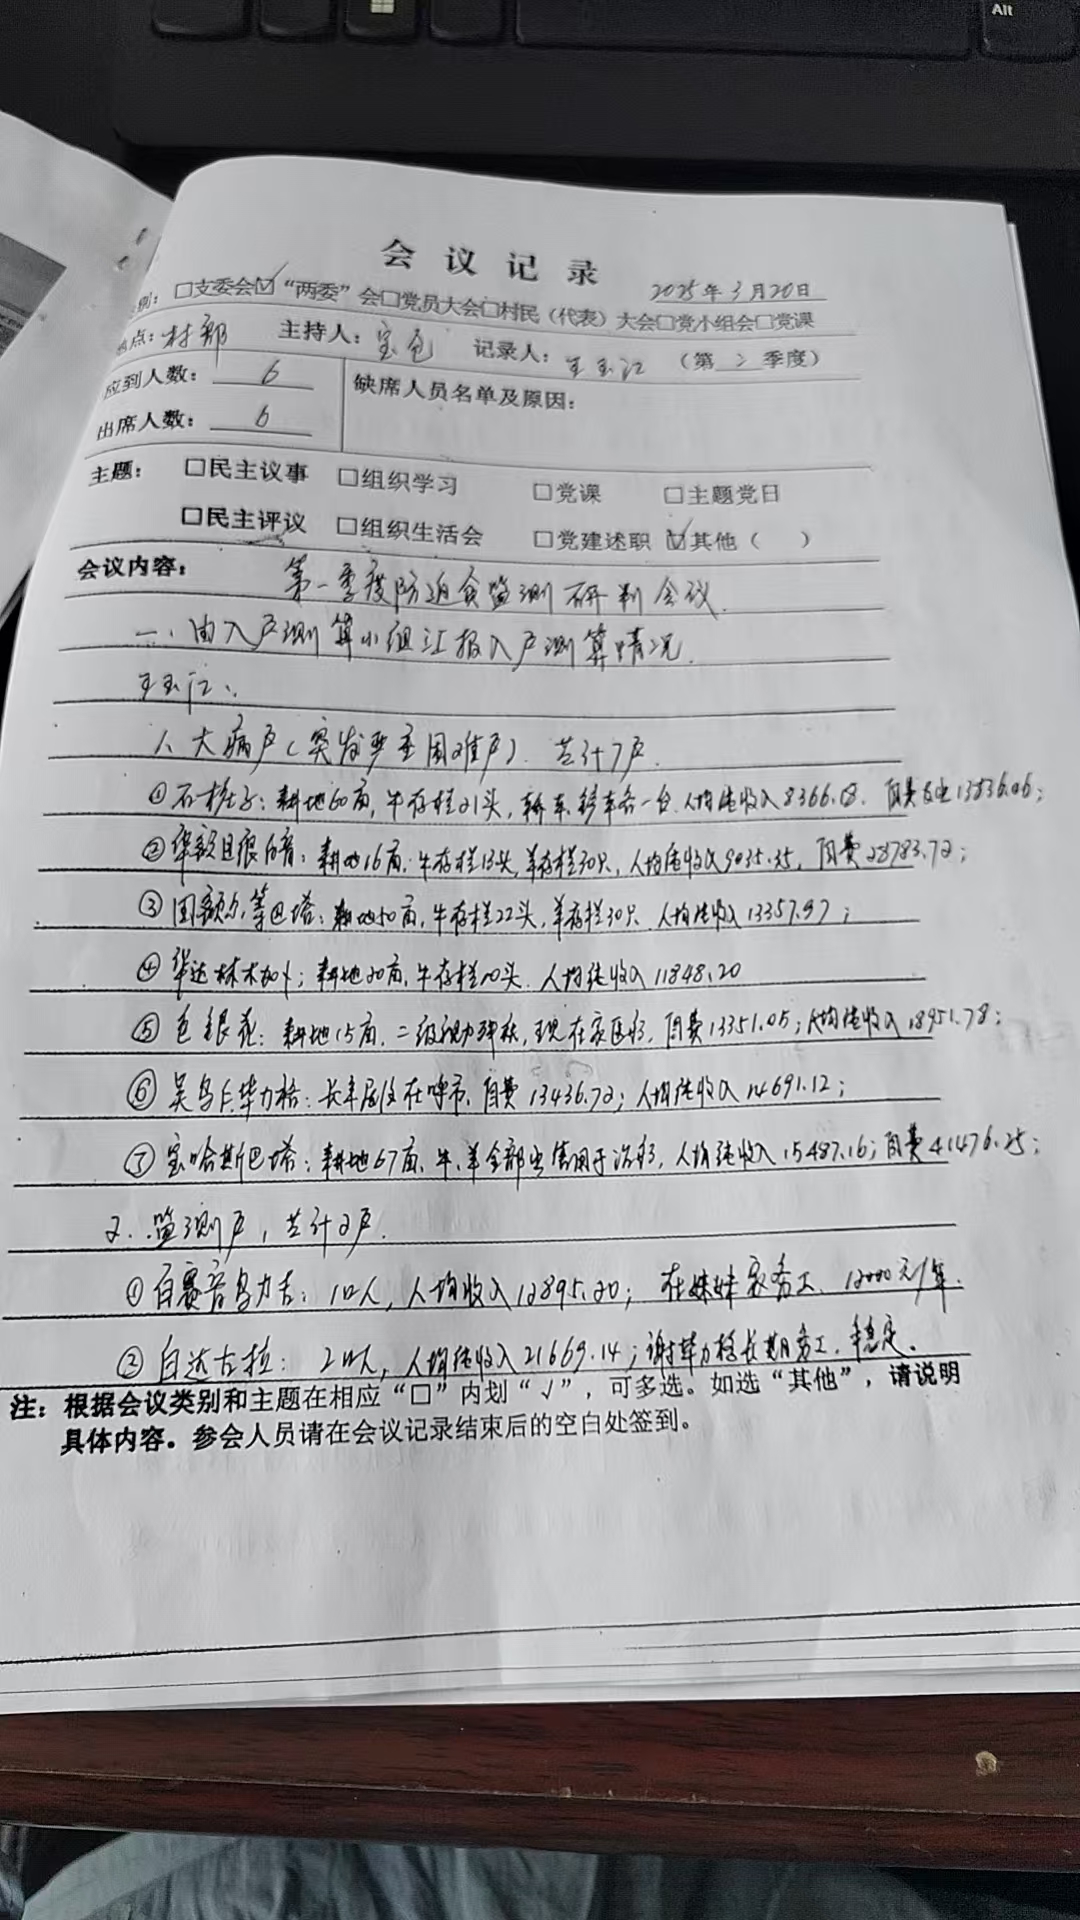 Alt
会议记录
2025年3月20日
别：□支委会☑“两委”会□党员大会□村民（代表）大会□党小组会□党课
点：村部 主持人：宝色 记录人：王玉江 （第 2 季度）
应到人数：6 缺席人员名单及原因：
出席人数：6
主题：□民主议事 □组织学习 □党课 □主题党日
□民主评议 □组织生活会 □党建述职 ☑其他（ ）
会议内容：第一季度防返贫监测研判会议.
一、由入户测算小组汇报入户测算情况.
王玉江：
1、大病户（突发严重困难户）. 共计7户.
①石柱子：耕地60亩，牛存栏21头，轿车、轿车各一台.人均纯收入8366.18. 自费支出13836.06；
②耕地16亩. 牛存栏13头，羊存栏30只，人均纯收入9035.35, 自费28783.72；
③耕地50亩，牛存栏22头，羊存栏30只. 人均纯收入13357.97；
④耕地20亩. 牛存栏10头. 人均纯收入11848.20
⑤包银花：耕地15亩. 二级视力残疾，现在家医疗. 自费13351.05；人均纯收入18951.78；
⑥吴乌仁毕力格：长年居住在呼市. 自费13436.72；人均纯收入14691.12；
⑦宝哈斯巴塔：耕地67亩. 牛、羊全部出售用于治疗. 人均纯收入15487.16；自费41476.25；
2、监测户，共计2户.
①白赛音乌力吉：1口人，人均收入12895.20；在妹妹家务工. 12000元/年.
②白达古拉：2口人，人均纯收入21669.14；谢毕力格长期务工. 稳定。
注：根据会议类别和主题在相应“□”内划“√”，可多选。如选“其他”，请说明
具体内容。参会人员请在会议记录结束后的空白处签到。